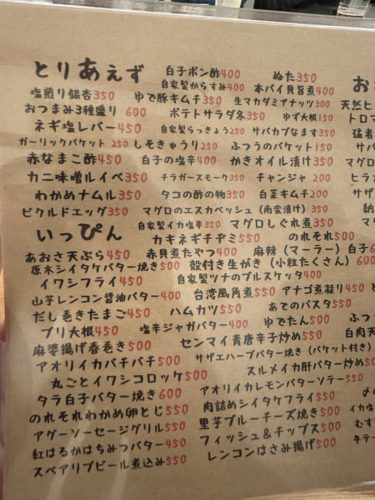 とりあえず 白子ポン酢400 ぬた350
塩煎り銀杏350 自家製からすみ400 本バイ貝旨煮400
おつまみ3種盛り 600 ゆで豚キムチ350 生マカダミアナッツ300
ネギ塩レバー450 ポテトサラダ冬350 ゆず大根150
ガーリックバケット250 自家製らっきょう250 サバカブなます350
赤なまこ酢450 しそきゅうり250 ふつうのバケット150
カニ味噌ルイベ350 白子の塩辛400 かきオイル漬け350
わかめナムル350 チラガースモーク350 チャンジャ 200
ピクルドエッグ350 タコの酢の物350 白菜キムチ200
マグロのエスカベッシュ(南蛮漬け)350
いっぴん 自家製イカ塩辛350 マグロしぐれ煮350
あおさ天ぷら450 カキネギチヂミ550 のれそれ500
原木シイタケバター焼き500 赤貝煮たやつ400 麻辣(マーラー)白子6
イワシフライ450 殻付き生がき(小粒たくさん)600
山芋レンコン醤油バター400 自家製ツナのブルスケッタ400
だし巻きたまご450 台湾風角煮550 アナゴ煮凝り450
ブリ大根450 ハムカツ550 あてのパスタ550
麻婆揚げ春巻き500 塩辛ジャガバター400 ゆでたん500
アオリイカバチバチ500 センマイ青唐辛子炒め550
丸ごとイワシコロッケ500 サザエハーブバター焼き(バケット付き)
タラ白子バター焼き600 スルメイカ肝バター炒め
のれそれわかめ卵とじ550 アオリイカレモンバターソテー550
アグーソーセージグリル550 肉詰めシイタケフライ550
紅はるかはちみつバター450 里芋ブルーチーズ焼き500
スペアリブビール煮込み550 フィッシュ&チップス500
レンコンはさみ揚げ500